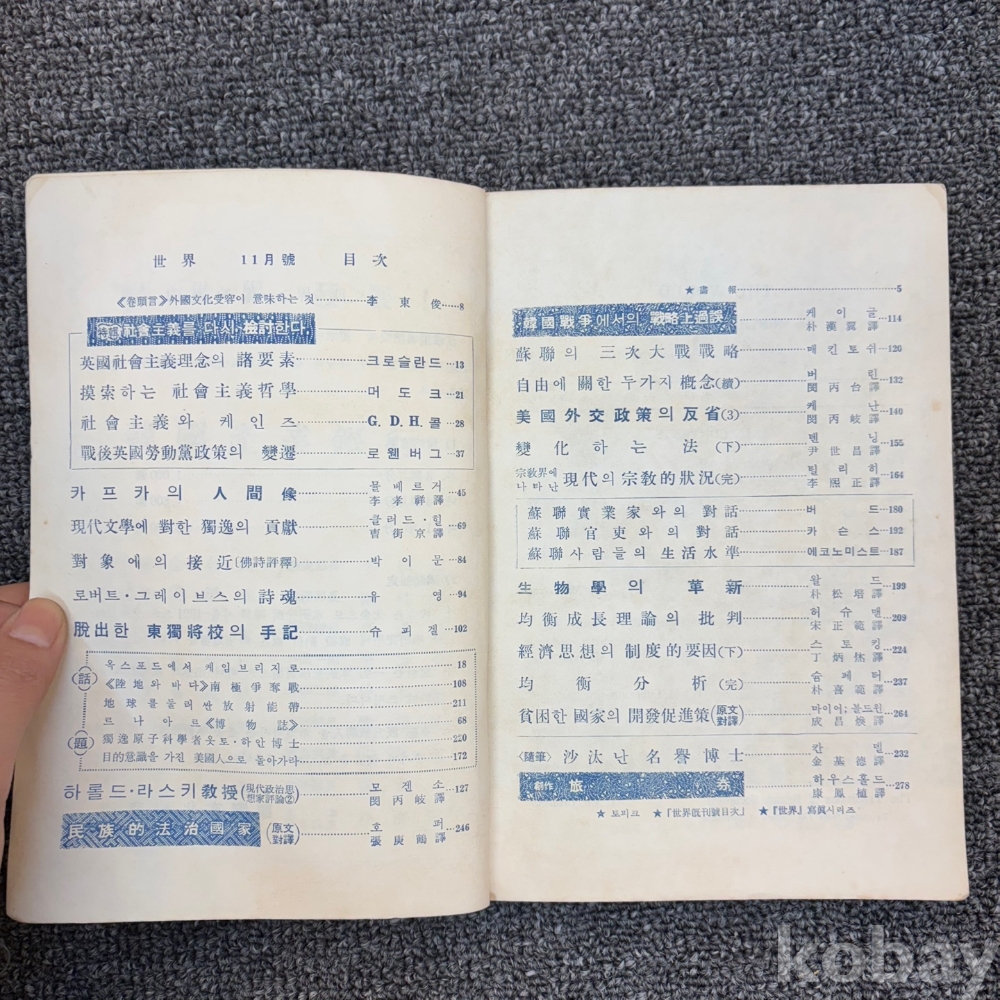 世界 11月號 目次
《卷頭言》外國文化受容이 意味하는 것 李東俊 8
特輯 社會主義를 다시 檢討한다
英國社會主義理念의 諸要素 크로슬란드 13
摸索하는 社會主義哲學 머도크 21
社會主義와 케인즈 G.D.H.콜 28
戰後英國勞動黨政策의 變遷 로웬버그 37
카프카의 人間像 믈베르거 李孝祥譯 45
現代文學에 對한 獨逸의 貢獻 클러드·힐 曺街京譯 69
對象에의 接近〔佛詩評釋〕 박이문 84
로버트·그레이브스의 詩魂 유영 94
脫出한 東獨將校의 手記 슈피겔 102
話題
옥스포드에서 케임브리지로 18
《陸地와 바다》南極爭奪戰 108
地球를 둘러싼 放射能帶 211
르나아르《博物誌》 68
獨逸原子科學者 옷토·하안博士 220
目的意識을 가진 美國人으로 돌아가라 172
하롤드·라스키敎授(現代政治思想家評論②) 모겐소 閔丙岐譯 127
民族的法治國家(原文對譯) 호퍼 張庚鶴譯 246
★畵報 5
韓國戰爭에서의 戰略上過誤 케이글 朴漢翼譯 114
蘇聯의 三次大戰戰略 매킨토쉬 126
自由에 關한 두가지 槪念(續) 버린 閔丙台譯 132
美國外交政策의 反省(3) 케난 閔丙岐譯 146
變化하는 法(下) 덴닝 尹世昌譯 155
宗敎界에 나타난 現代의 宗敎的狀況(完) 틸리히 李熙正譯 164
蘇聯實業家와의 對話 버드 180
蘇聯官吏와의 對話 카슨스 192
蘇聯사람들의 生活水準 에코노미스트 187
生物學의 革新 왈드 朴松培譯 199
均衡成長理論의 批判 허슈맨 宋正範譯 209
經濟思想의 制度的要因(下) 스토킹 丁炳烋譯 224
均衡分析(完) 슘페터 朴喜範譯 237
貧困한 國家의 開發促進策(原文對譯) 마이어;볼드윈 成昌煥譯 264
〈隨筆〉沙汰난 名譽博士 칸멘 金基德譯 232
創作 旅券 하우스홀드 康鳳植譯 278
★ 토피크 ★『世界旣刊號目次』 ★『世界』寫眞시리즈
kobay